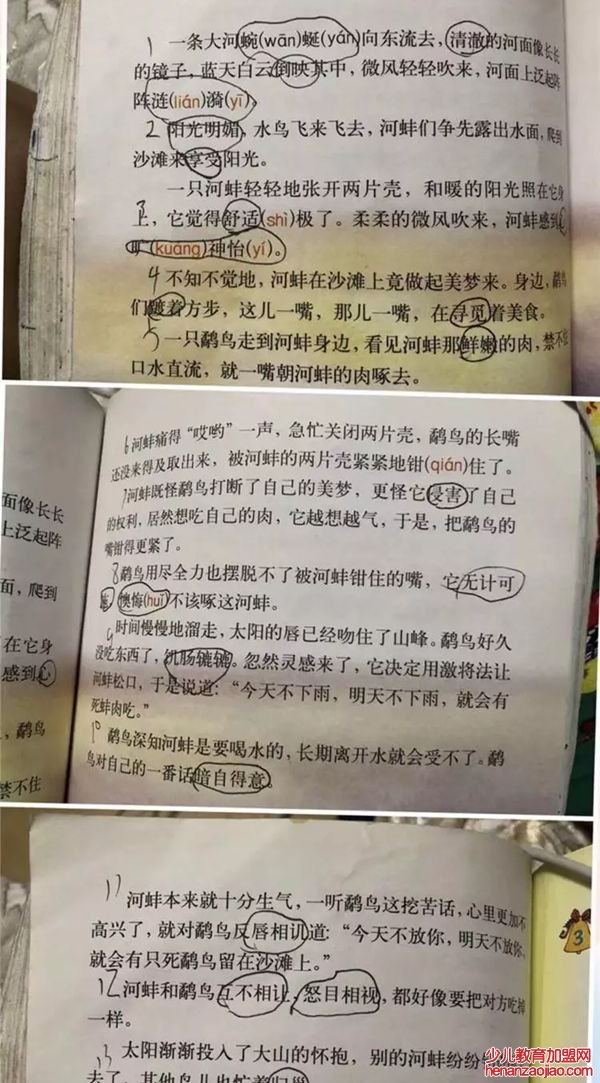 1 一条大河蜿(wān)蜒(yán)向东流去，清澈的河面像长长
的镜子，蓝天白云倒映其中，微风轻轻吹来，河面上泛起阵
阵涟(lián)漪(yī)。
2 阳光明媚，水鸟飞来飞去，河蚌们争先露出水面，爬到
沙滩来享受阳光。
一只河蚌轻轻地张开两片壳，和暖的阳光照在它身
3 上，它觉得舒适(shì)极了。柔柔的微风吹来，河蚌感到心
旷(kuàng)神怡(yí)。
4 不知不觉地，河蚌在沙滩上竟做起美梦来。身边，鹬鸟
们踱着方步，这儿一嘴，那儿一嘴，在寻觅着美食。
5 一只鹬鸟走到河蚌身边，看见河蚌那鲜嫩的肉，禁不住
口水直流，就一嘴朝河蚌的肉啄去。
6 河蚌痛得“哎哟”一声，急忙关闭两片壳，鹬鸟的长嘴
还没来得及取出来，被河蚌的两片壳紧紧地钳(qián)住了。
7 河蚌既怪鹬鸟打断了自己的美梦，更怪它侵害了自己
的权利，居然想吃自己的肉，它越想越气，于是，把鹬鸟的
嘴钳得更紧了。
8 鹬鸟用尽全力也摆脱不了被河蚌钳住的嘴，它无计可
施，懊悔(huǐ)不该啄这河蚌。
9 时间慢慢地溜走，太阳的唇已经吻住了山峰。鹬鸟好久
没吃东西了，饥肠辘辘。忽然灵感来了，它决定用激将法让
河蚌松口，于是说道：“今天不下雨，明天不下雨，就会有
死蚌肉吃。”
10 鹬鸟深知河蚌是要喝水的，长期离开水就会受不了。鹬
鸟对自己的一番话暗自得意。
面像长长
上泛起阵
面，爬到
在它身
感到心
，鹬鸟
禁不住
11 河蚌本来就十分生气，一听鹬鸟这挖苦话，心里更加不
高兴了，就对鹬鸟反唇相讥道：“今天不放你，明天不放你，
就会有只死鹬鸟留在沙滩上。”
12 河蚌和鹬鸟互不相让，怒目相视，都好像要把对方吃掉
一样。
13 太阳渐渐投入了大山的怀抱，别的河蚌纷纷
去了，其他鸟儿也忙着归巢
3
少儿教育加盟网
henanzaojiao.com